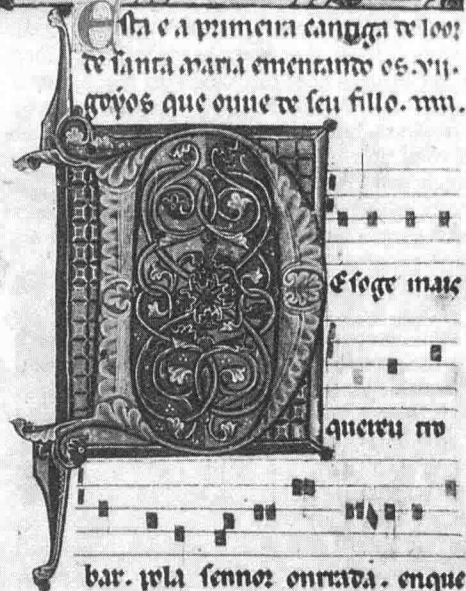 Esta e a primeira cantiga de loor
de santa maria ementando os .vii.
goyos que ouue de seu fillo.
Desoge mais
quereu tro
bar. pola sennor onrrada. enque